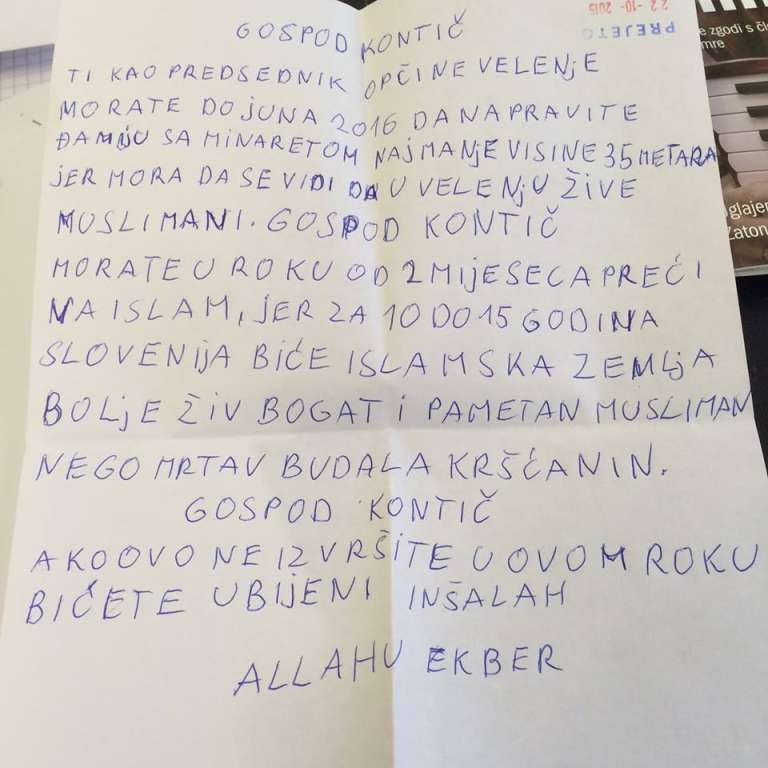 22-10-2015
PREJETO
GOSPOD KONTIČ
TI KAO PREDSEDNIK OPČINE VELENJE
MORATE DO JUNA 2016 DA NAPRAVITE
ĐAMIJU SA MINARETOM NAJMANJE VISINE 35 METARA
JER MORA DA SE VIDI DA U VELENJU ŽIVE
MUSLIMANI. GOSPOD KONTIČ
MORATE U ROKU OD 2 MIJESECA PREĆI
NA ISLAM, JER ZA 10 DO 15 GODINA
SLOVENIJA BIĆE ISLAMSKA ZEMLJA
BOLJE ŽIV BOGAT I PAMETAN MUSLIMAN
NEGO MRTAV BUDALA KRŠĆANIN.
GOSPOD KONTIČ
AKO OVO NE IZVRŠITE U OVOM ROKU
BIĆETE UBIJENI INŠALAH
ALLAHU EKBER
e zgodi s čl
mre
glajen
Zaton